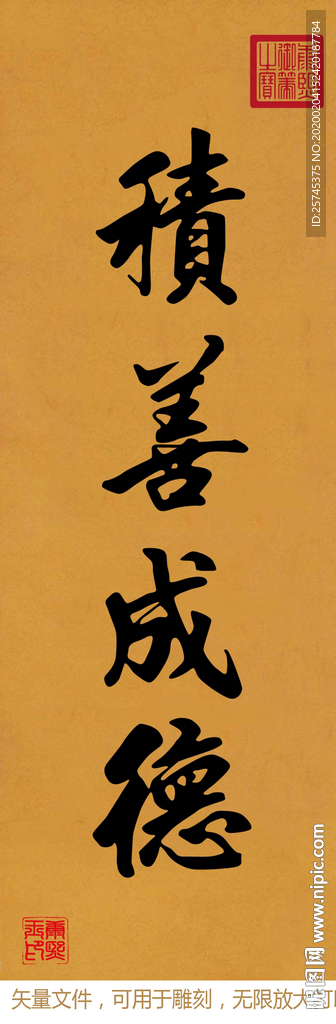 積善成德
康熙
御筆
之寶
ID:25745375 NO:20200204152420187784
昵图网 www.nipic.com
矢量文件，可用于雕刻，无限放大